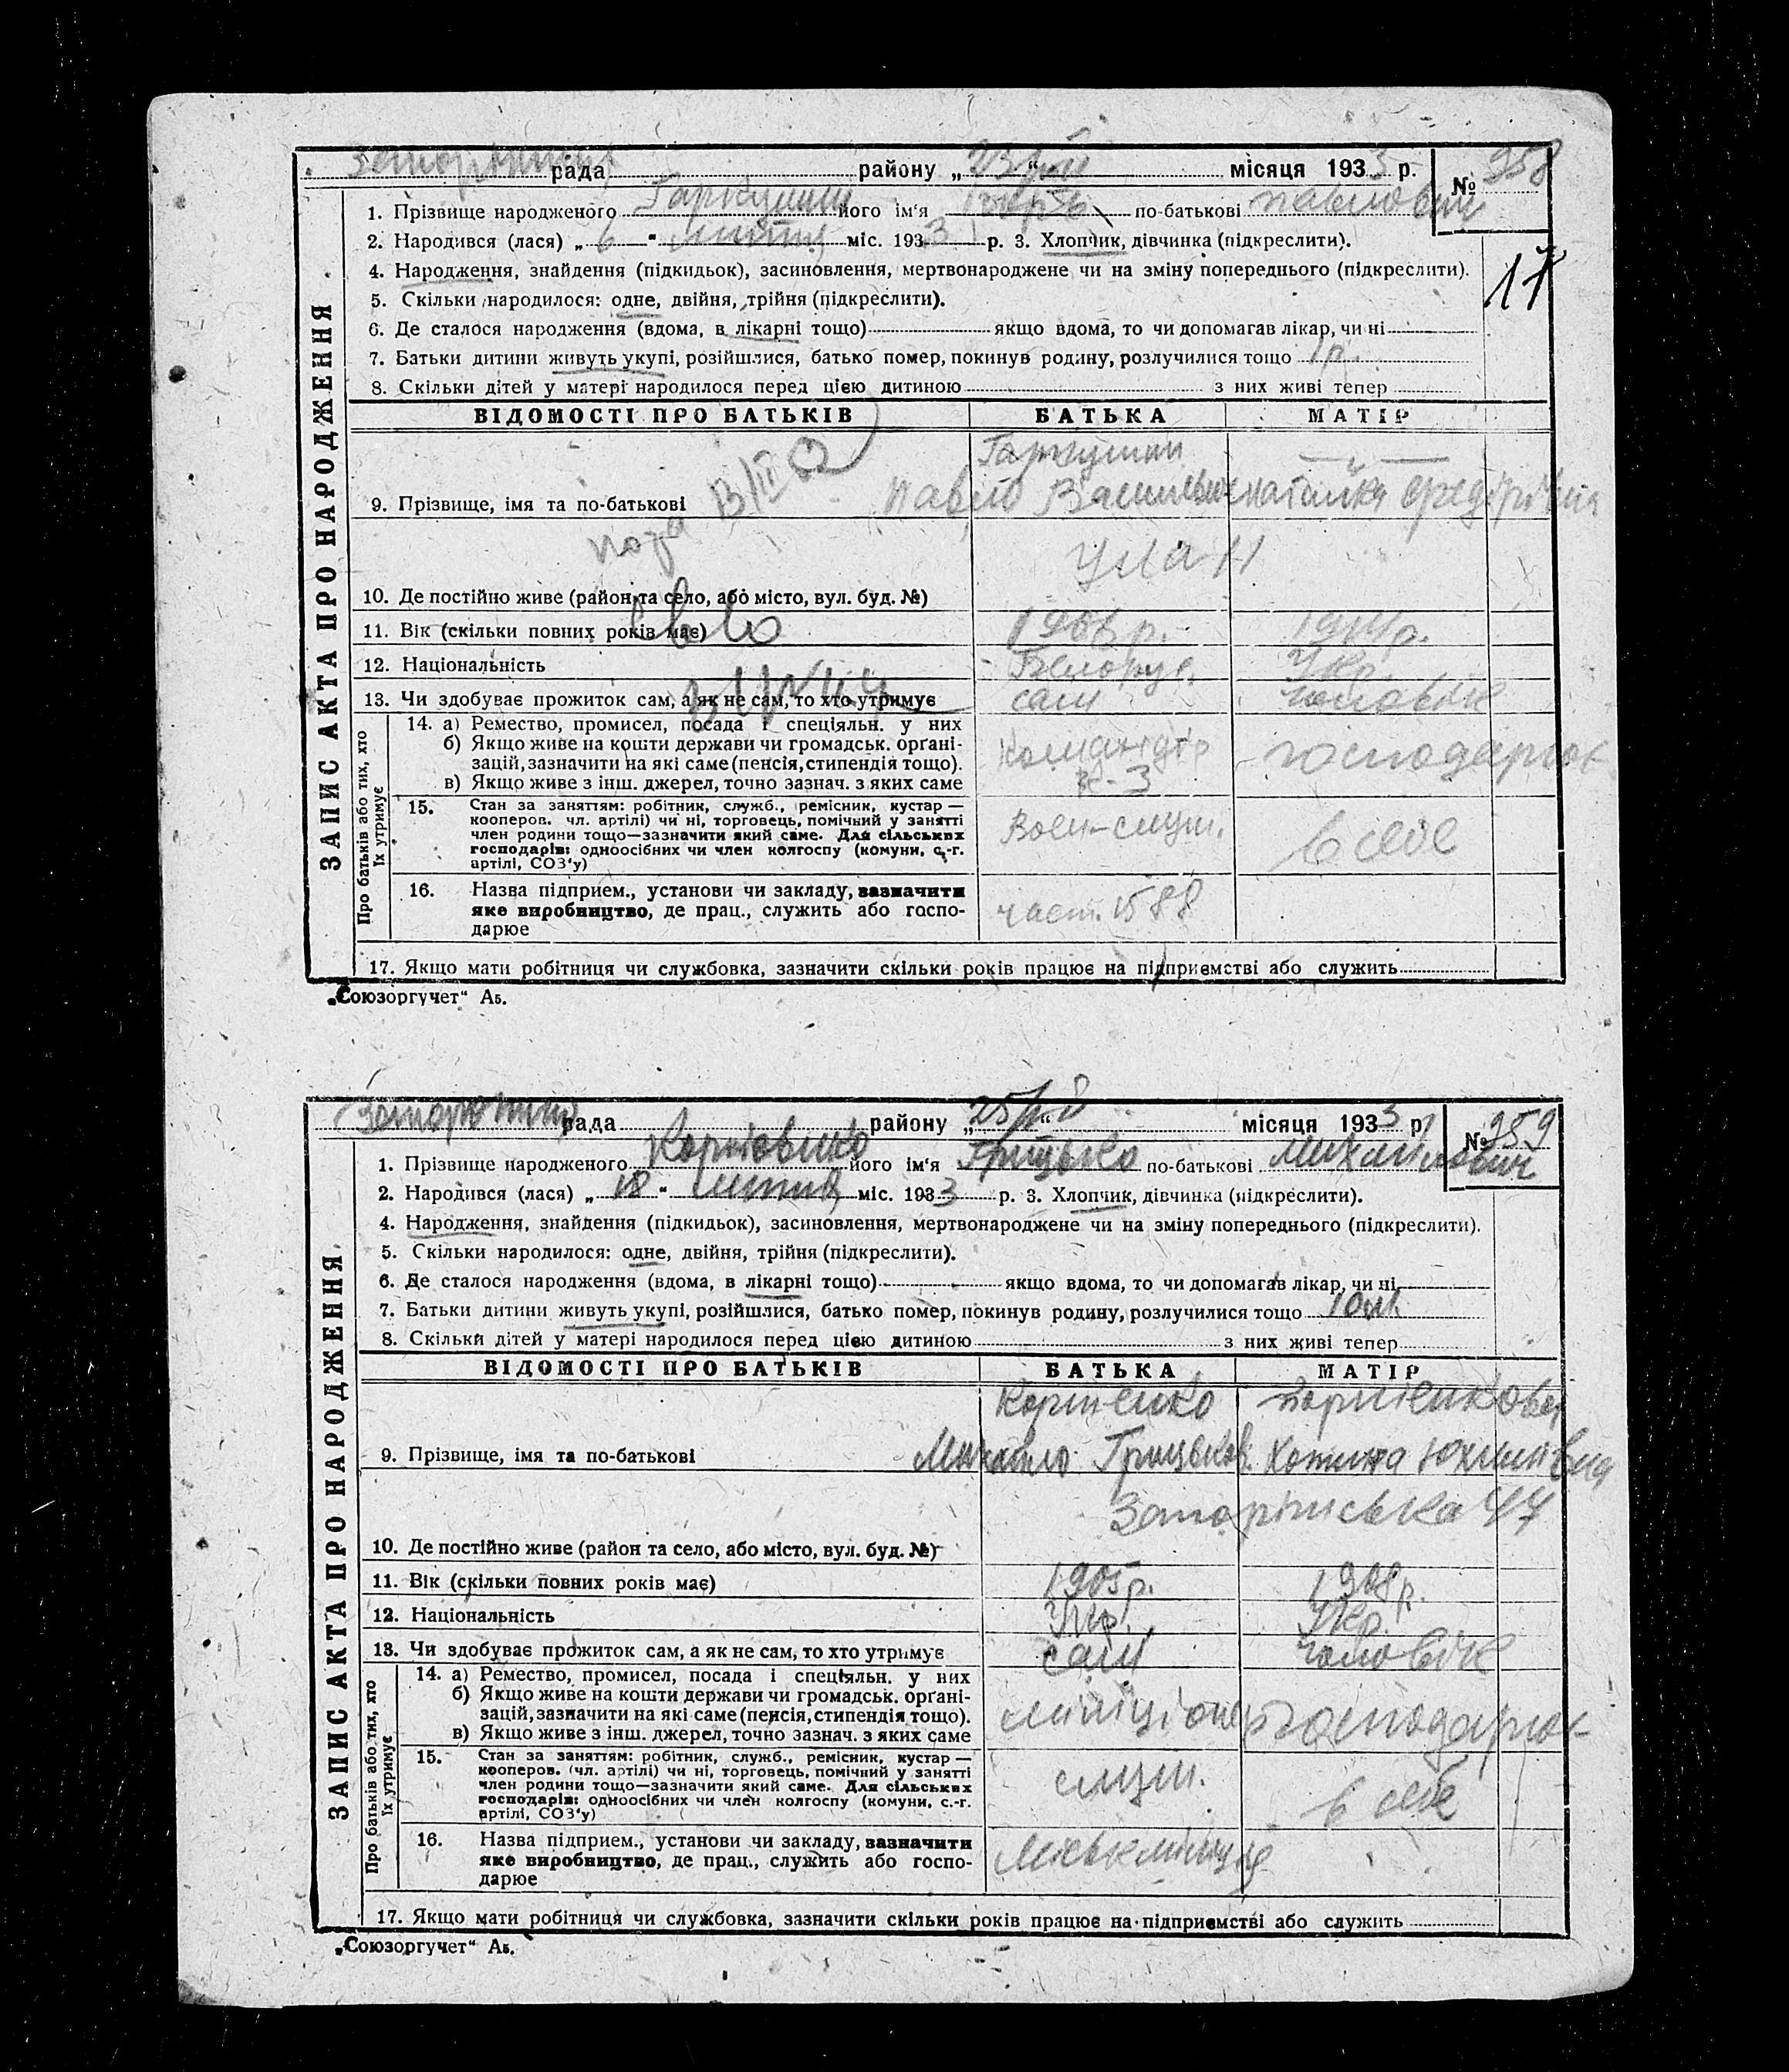 рада району „23/VII“ місяця 1933 р. № 958
1. Прізвище народженого Гаркушин його ім‘я Ігорь по-батькові Павлович
2. Народився (лася) „6“ липня міс. 1933 р. 3. Хлопчик, дівчинка (підкреслити).
17
4. Народження, знайдення (підкидьок), засиновлення, мертвонароджене чи на зміну попереднього (підкреслити).
5. Скільки народилося: одне, двійня, трійня (підкреслити).
6. Де сталося народження (вдома, в лікарні тощо) якщо вдома, то чи допомагав лікар, чи ні
7. Батьки дитини живуть укупі, розійшлися, батько помер, покинув родину, розлучилися тощо 1 р.
8. Скільки дітей у матері народилося перед цією дитиною з них живі тепер
ЗАПИС АКТА ПРО НАРОДЖЕННЯ
ВІДОМОСТІ ПРО БАТЬКІВ БАТЬКА МАТІР
Гаркушин — „ —
9. Прізвище, імя та по-батькові Павло Васильов. Наталка
10. Де постійно живе (район та село, або місто, вул. буд. №)
11. Вік (скільки повних років має) р. р.
12. Національність Белорус. Укр.
13. Чи здобуває прожиток сам, а як не сам, то хто утримує сам чоловік
Про батьків або тих, хто їх утримує
14. а) Ремество, промисел, посада і спеціяльн. у них
б) Якщо живе на кошти держави чи громадськ. орґані-
зацій, зазначити на які саме (пенсія, стипендія тощо). Командир господарює
в) Якщо живе з інш. джерел, точно зазнач. з яких саме К-3
15. Стан за заняттям: робітник, служб., ремісник, кустар —
кооперов. чл. артілі) чи ні, торговець, помічний у занятті
член родини тощо—зазначити який саме. Для сільських Воен-служ. в себе
господарів: одноосібних чи член колгоспу (комуни, с.-г.
артілі, СОЗ‘у)
16. Назва підприєм., установи чи закладу, зазначити
яке виробництво, де прац., служить або госпо- част. 1588
дарює
17. Якщо мати робітниця чи службовка, зазначити скільки років працює на підприємстві або служить
„Союзоргучет“ Аб.
рада району „25/VII“ місяця 1933 р. № 959
1. Прізвище народженого його ім‘я Грицько по-батькові Михайлович
2. Народився (лася) „18“ липня міс. 1933 р. 3. Хлопчик, дівчинка (підкреслити).
4. Народження, знайдення (підкидьок), засиновлення, мертвонароджене чи на зміну попереднього (підкреслити).
5. Скільки народилося: одне, двійня, трійня (підкреслити).
6. Де сталося народження (вдома, в лікарні тощо) якщо вдома, то чи допомагав лікар, чи ні
7. Батьки дитини живуть укупі, розійшлися, батько помер, покинув родину, розлучилися тощо
8. Скільки дітей у матері народилося перед цією дитиною з них живі тепер
ЗАПИС АКТА ПРО НАРОДЖЕННЯ
ВІДОМОСТІ ПРО БАТЬКІВ БАТЬКА МАТІР
9. Прізвище, імя та по-батькові Михайло Грицьков. Юхимівна
Запоріжська 47
10. Де постійно живе (район та село, або місто, вул. буд. №)
11. Вік (скільки повних років має) 1905 р. 1908 р.
12. Національність Укр. Укр.
13. Чи здобуває прожиток сам, а як не сам, то хто утримує сам чоловік
Про батьків або тих, хто їх утримує
14. а) Ремество, промисел, посада і спеціяльн. у них
б) Якщо живе на кошти держави чи громадськ. орґані-
зацій, зазначити на які саме (пенсія, стипендія тощо). міліціонер господарює
в) Якщо живе з інш. джерел, точно зазнач. з яких саме
15. Стан за заняттям: робітник, служб., ремісник, кустар —
кооперов. (чл. артілі) чи ні, торговець, помічний у занятті
член родини тощо—зазначити який саме. Для сільських служ. в себе
господарів: одноосібних чи член колгоспу (комуни, с.-г.
артілі, СОЗ‘у)
16. Назва підприєм., установи чи закладу, зазначити
яке виробництво, де прац., служить або госпо- Міськміліція
дарює
17. Якщо мати робітниця чи службовка, зазначити скільки років працює на підприємстві або служить
„Союзоргучет“ Аб.